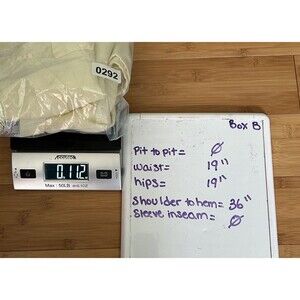 0292
Accuteck
0.11.2
Max : 50LB d=0.1OZ
Box B
Pit to pit = ∅
waist = 19"
hips = 19"
Shoulder to hem = 36"
Sleeve inseam = ∅